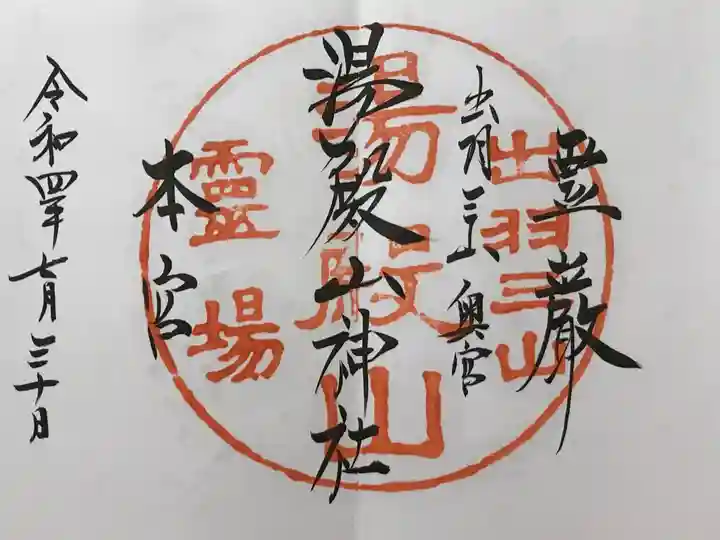 霊巌
出羽三山 奥宮
湯殿山神社
本宮
令和四年七月三十日
出羽三山
湯殿山
霊場